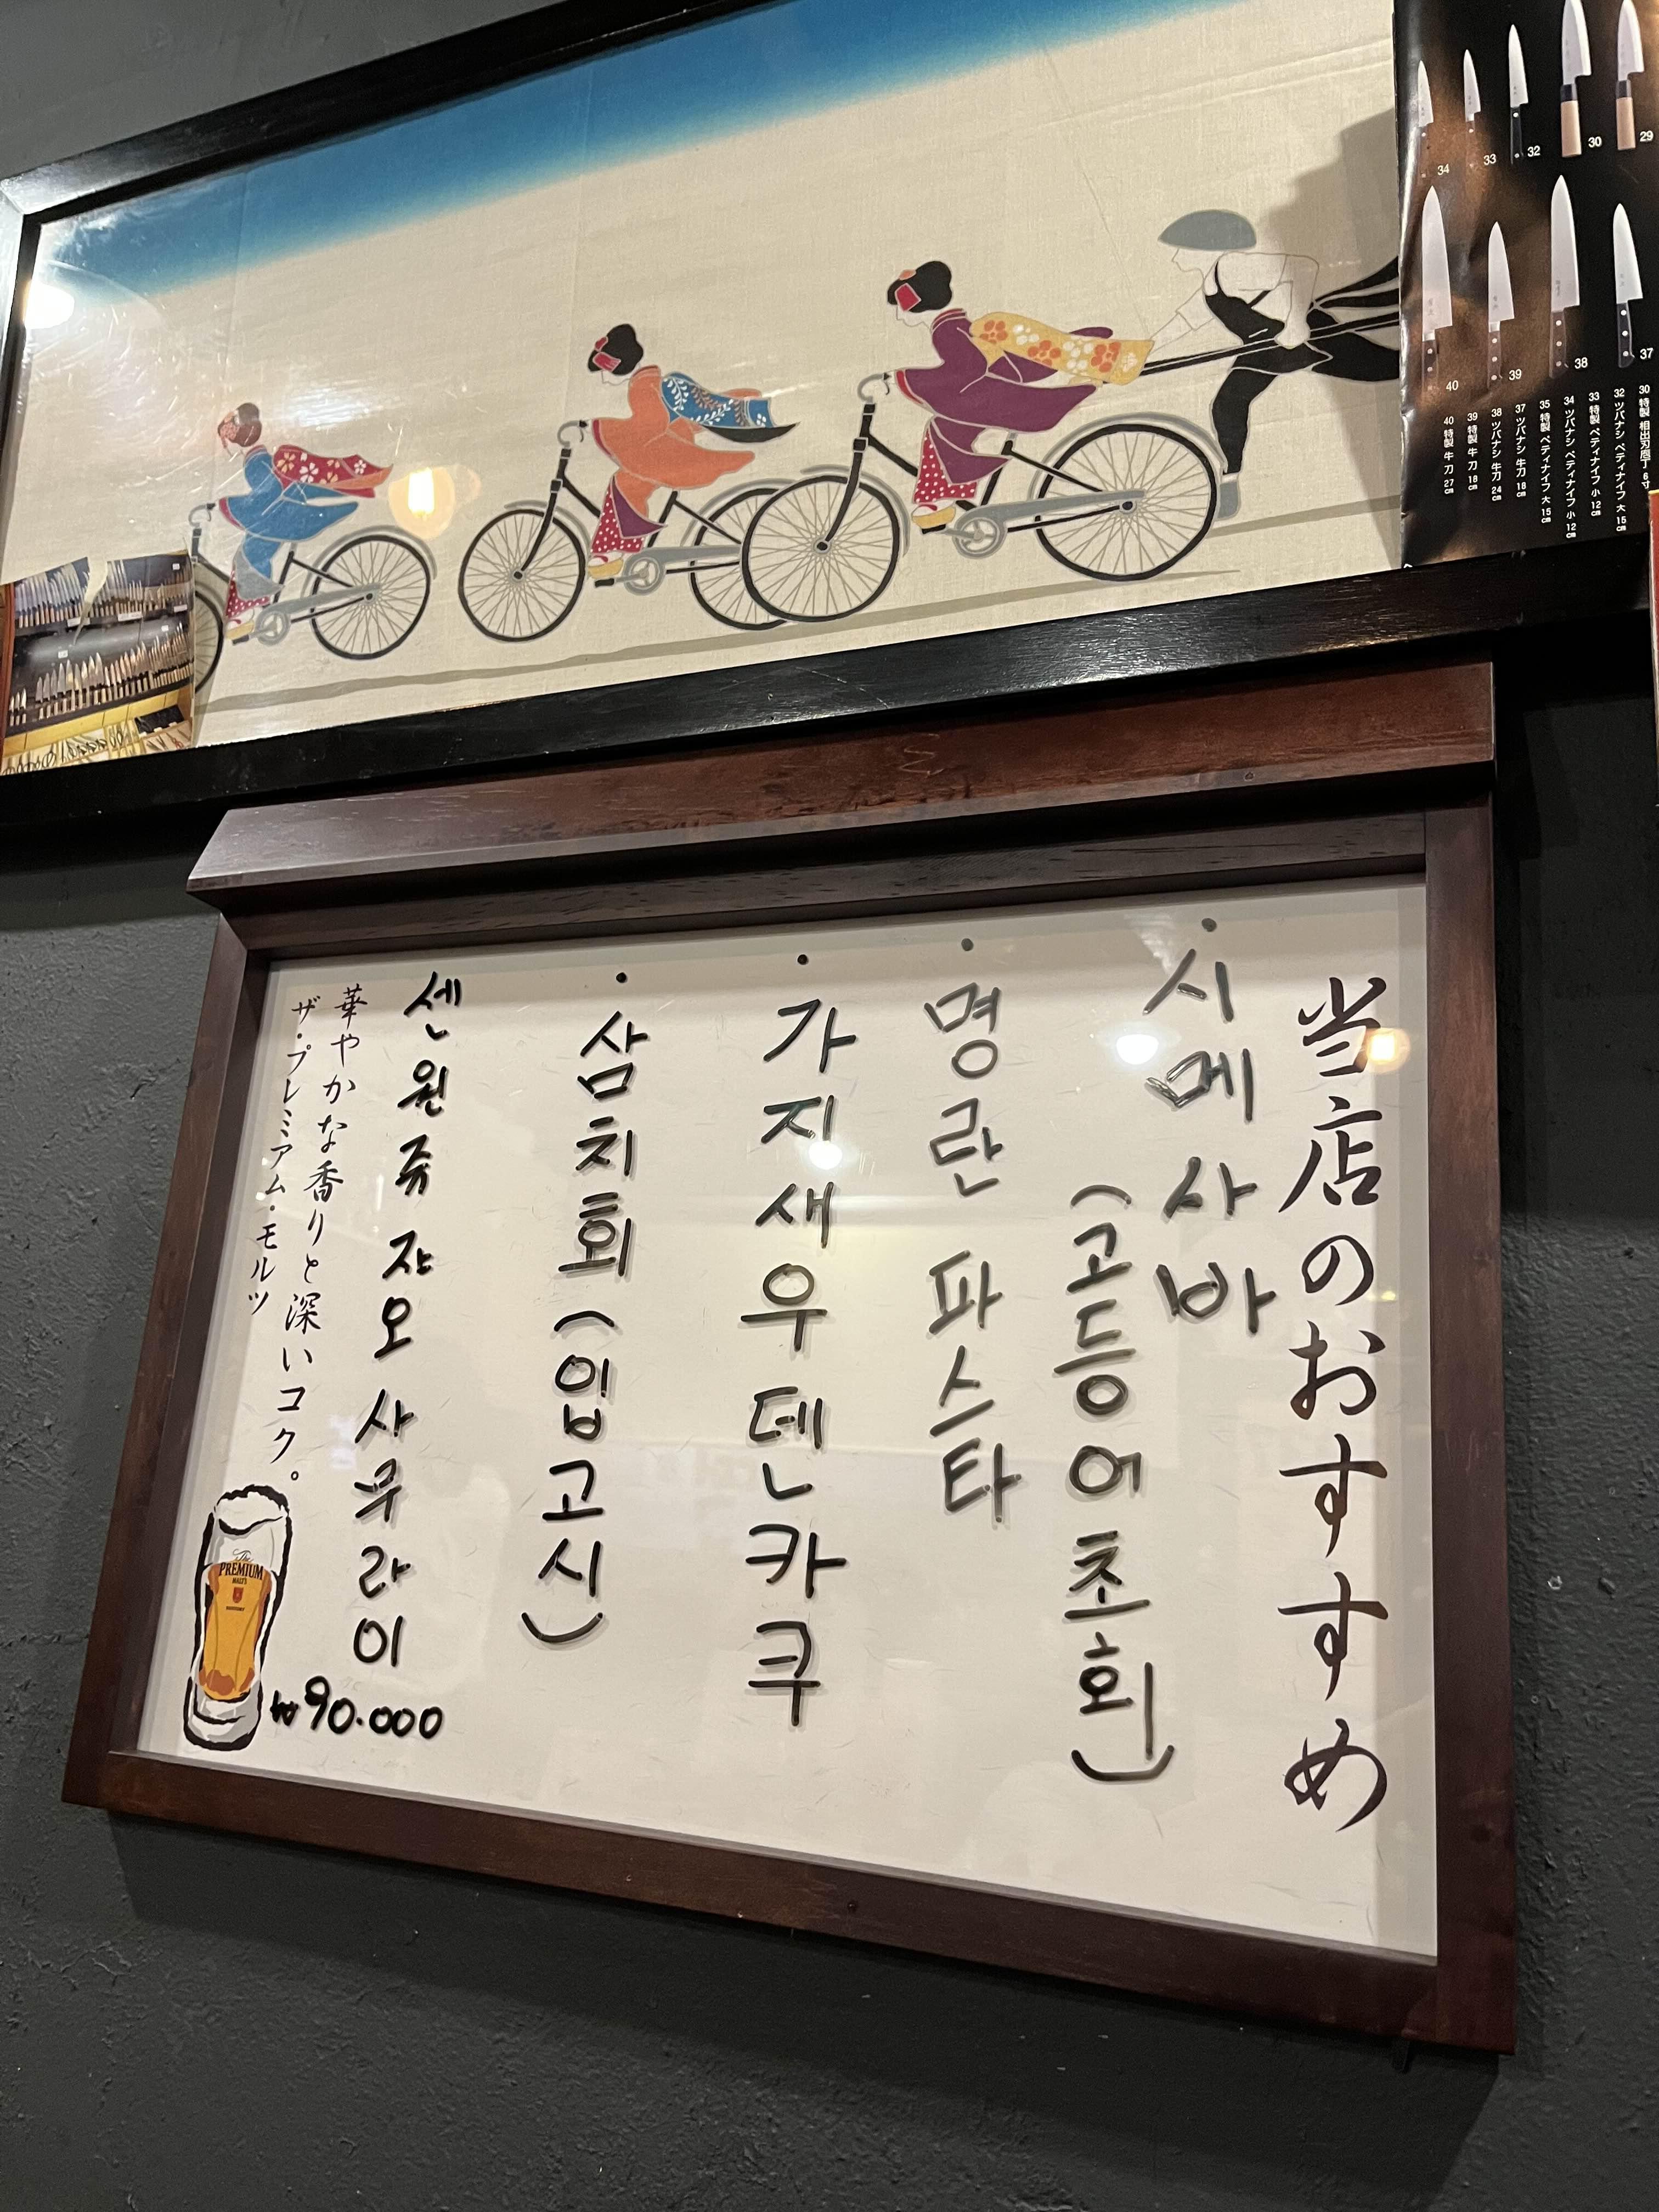 34
33
32
30
29
40
39
38
37
30 特製 相出刃庖丁 6寸
32 ツバナシ ペティナイフ 大 15cm
33 特製 ペティナイフ 小 12cm
34 ツバナシ ペティナイフ 小 12cm
35 特製 ペティナイフ 大 15cm
37 ツバナシ 牛刀 18cm
38 ツバナシ 牛刀 24cm
39 特製 牛刀 18cm
40 特製 牛刀 27cm
当店のおすすめ
·시메사바
(고등어초회)
·명란 파스타
·가지새우덴카쿠
·삼치회(입고시)
센원쥬 쟈오 사무라이
₩90.000
華やかな香りと深いコク。
ザ・プレミアム・モルツ
The
PREMIUM
MALT'S
SUNTORY